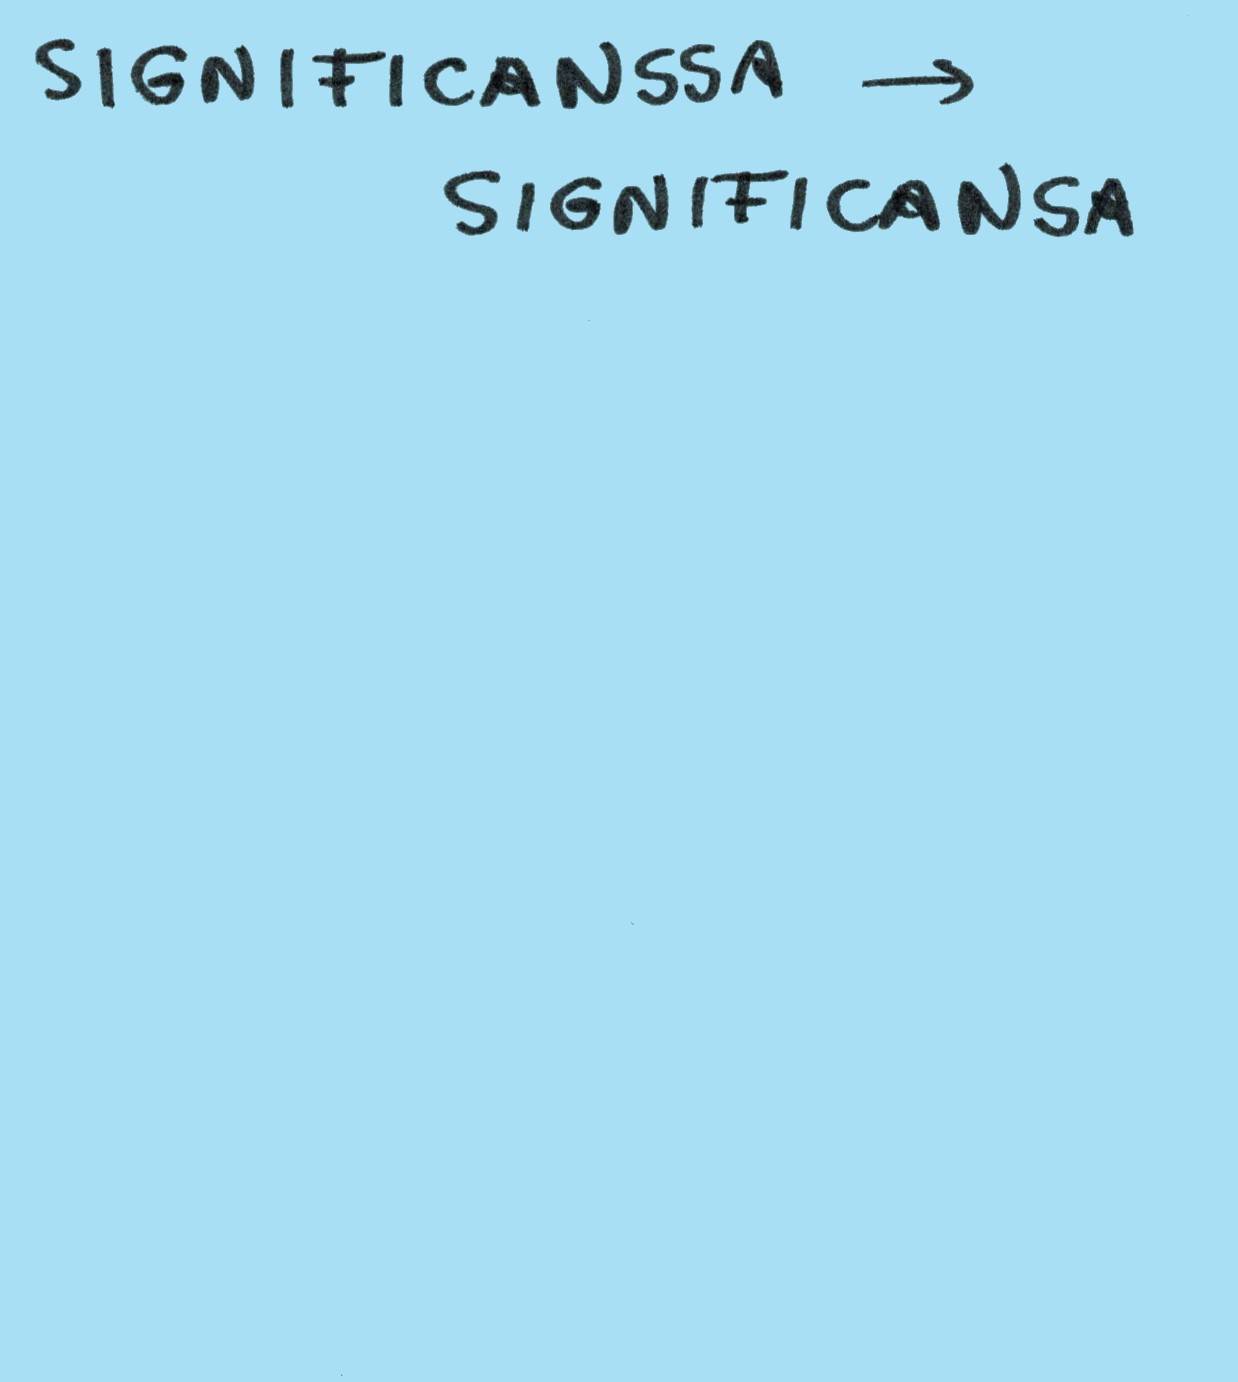 SIGNIFICANSSA →
SIGNIFICANSA